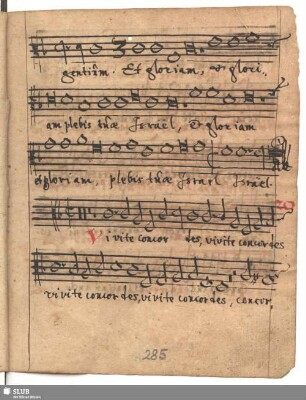 gentium. Et gloriam, & glori,,
am plebis tuæ Israel, & gloriam
et gloriam, plebis tuæ Israel Israel.
Vivite concor des, vivite concordes
vivite concordes, vivite concordes, concor,
285
SLUB